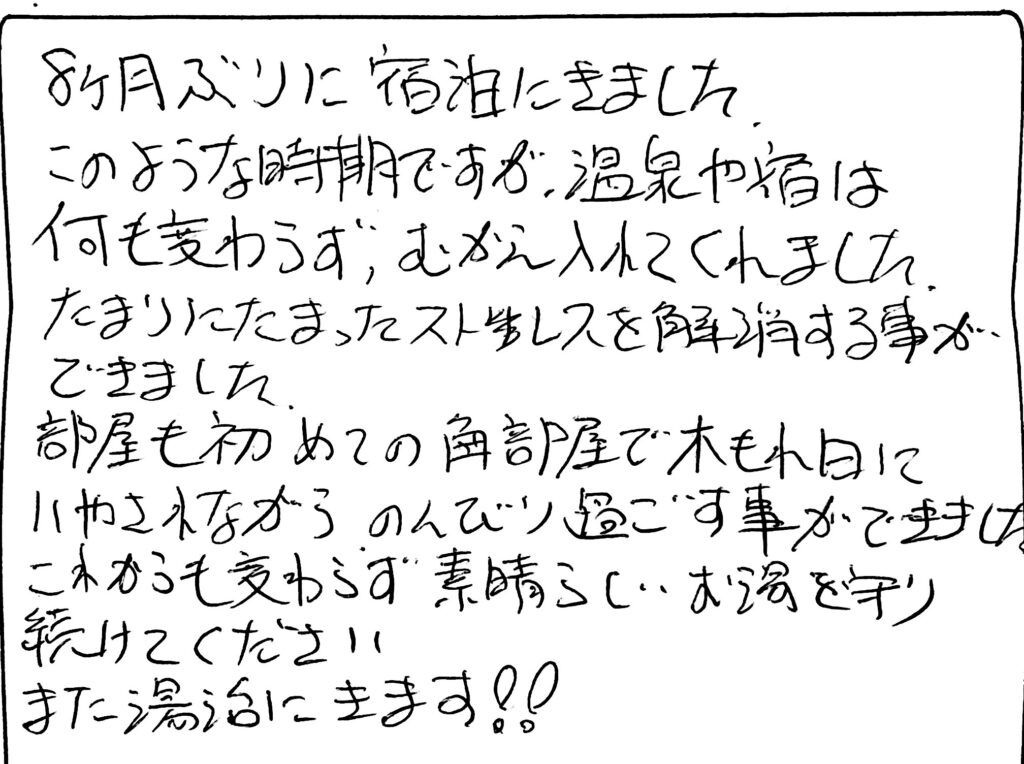 8ヶ月ぶりに宿泊にきました.
このような時期ですが、温泉や宿は
何も変わらず、むかえ入れてくれました.
たまりにたまったストレスを解消する事が
できました.
部屋も初めての角部屋で木もれ日に
いやされながらのんびり過ごす事ができました
これからも変わらず素晴らしいお湯を守り
続けてください
また湯治にきます!!